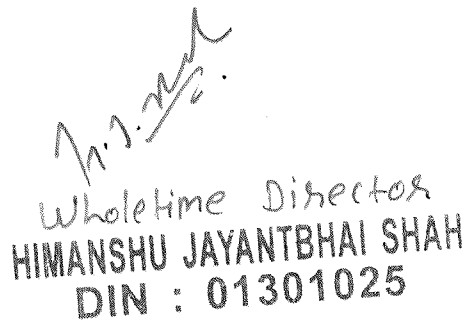 Wholetime Director
HIMANSHU JAYANTBHAI SHAH
DIN : 01301025